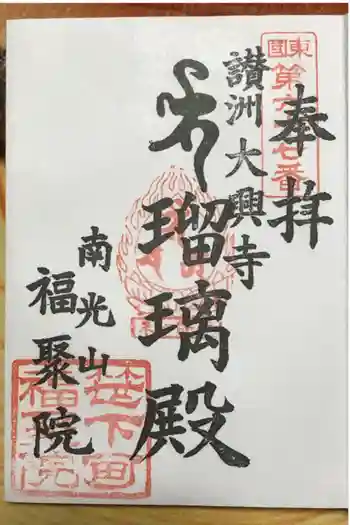 奉拝
讃洲大興寺
瑠璃殿
南光山
福聚院
東国
第六十七番